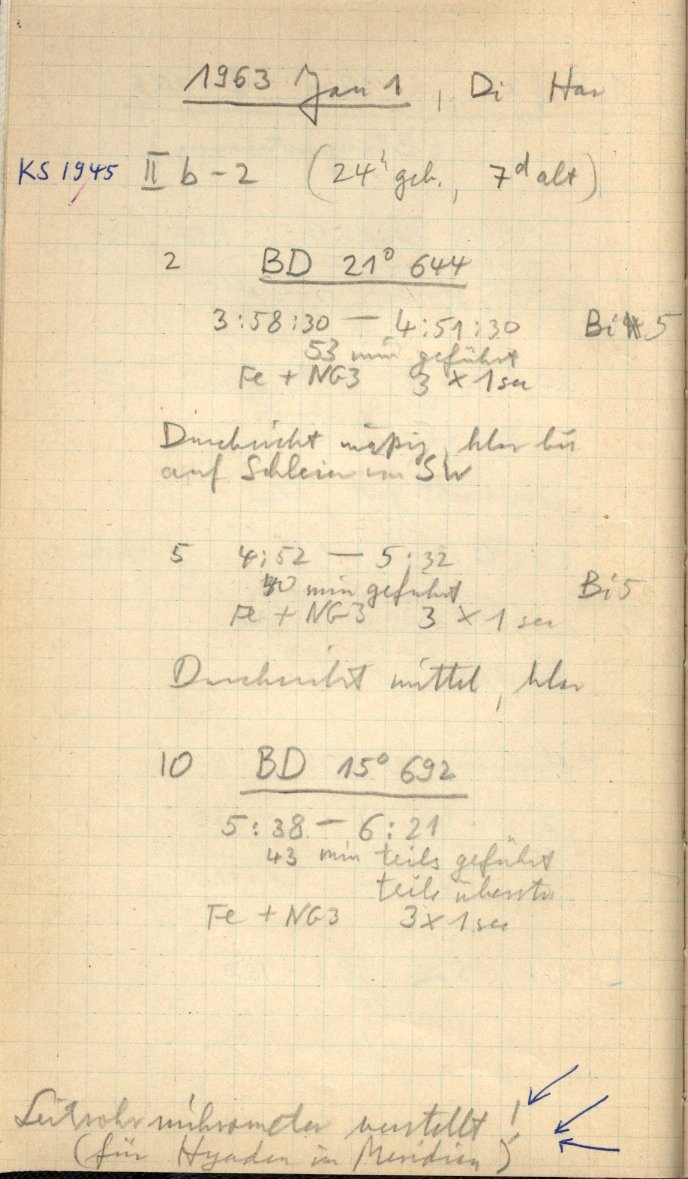 1963 Jan 1, Di Har
KS 1945 II b-2 (24h geb., 7d alt)
2 BD 21° 644
3:58:30 — 4:51:30 Bi 5
53 min geführt
Fe + NG3 3 × 1 sec
Durchsicht mäßig, klar bis
auf Schleier im SW
5 4:52 — 5:32
40 min geführt Bi 5
Fe + NG3 3 × 1 sec
Durchsicht mittel, klar
10 BD 15° 692
5:38 — 6:21
43 min teils geführt
teils
Fe + NG3 3 × 1 sec
Leitrohrmikrometer verstellt !
(für Hyaden im Meridian)